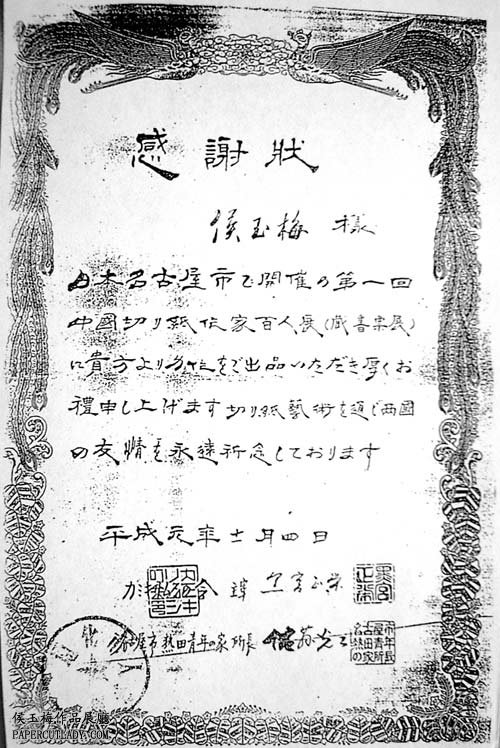 感謝状
侯玉梅 様
日本名古屋市で開催の第一回
中國切り紙作家百人展(蔵書票展)
に貴方より多作をご出品いただき厚くお
禮申し上げます切り紙藝術を通じ両國
の友情を永遠祈念しております
平成元年十一月四日
名古屋市熱田青年の家所長
侯玉梅作品展廳
PAPERCUTLADY.COM